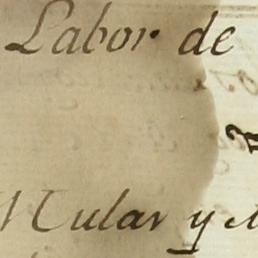 Labor de
Mular y